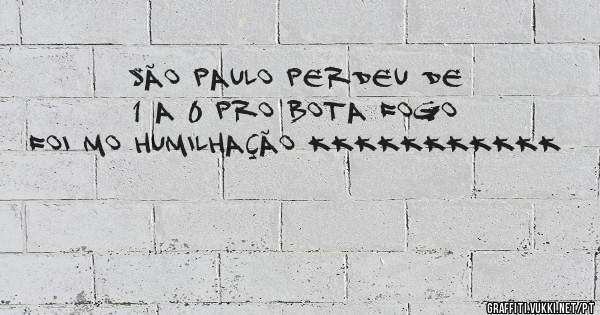 SÃO PAULO PERDEU DE
1 A 0 PRO BOTA FOGO
FOI MO HUMILHAÇÃO KKKKKKKKKKK
GRAFFITI.VUKKI.NET/PT